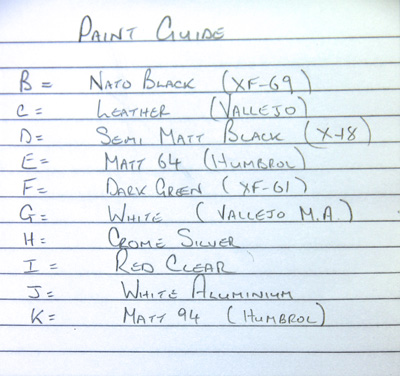 PAINT GUIDE
B = NATO BLACK (XF-69)
C = LEATHER (VALLEJO)
D = SEMI MATT BLACK (X-18)
E = MATT 64 (HUMBROL)
F = DARK GREEN (XF-61)
G = WHITE (VALLEJO M.A.)
H = CROME SILVER
I = RED CLEAR
J = WHITE ALUMINIUM
K = MATT 94 (HUMBROL)